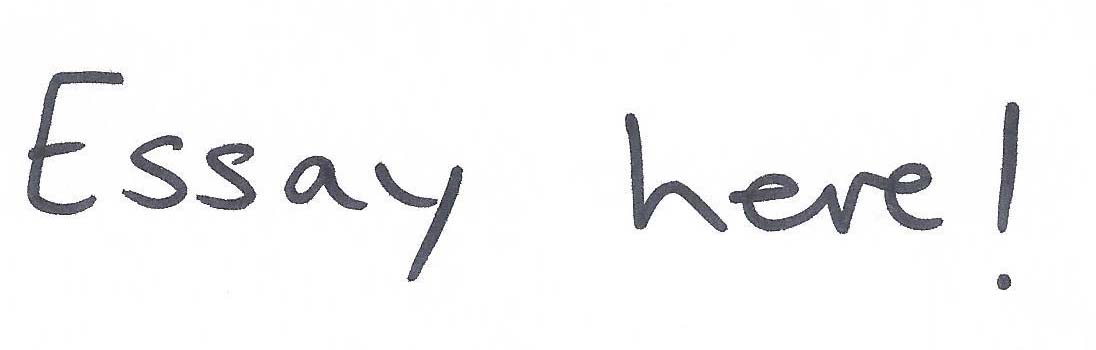 Essay here!